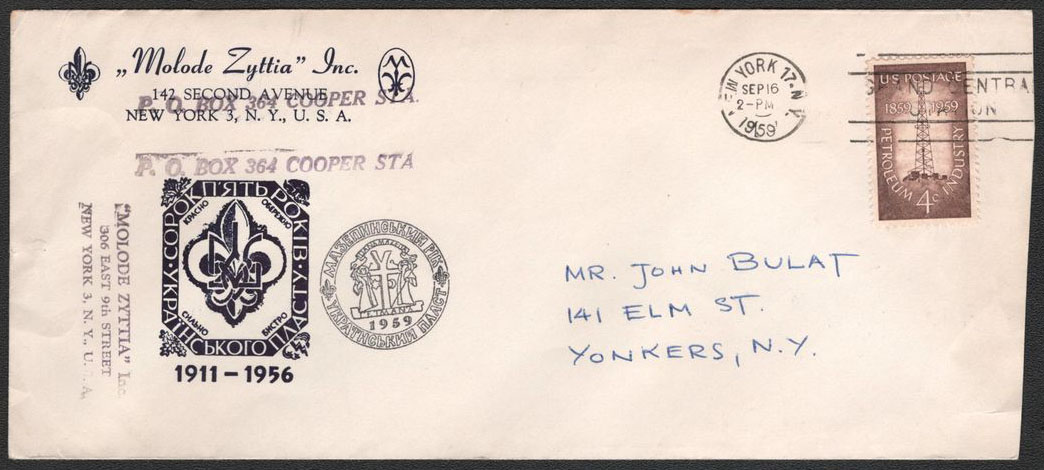 „Molode Zyttia” Inc.
142 SECOND AVENUE
P. O. BOX 364 COOPER STA.
NEW YORK 3, N. Y., U. S. A.
P. O. BOX 364 COOPER STA
"MOLODE ZYTTIA" Inc.
306 EAST 9th STREET
NEW YORK 3, N. Y., U. . A.
СОРОК П'ЯТЬ РОКІВ
УКРАЇНСЬКОГО ПЛАСТУ
КРАСНО
ОБЕРЕЖНО
СИЛЬНО
БИСТРО
1911 – 1956
МАЗЕПИНСЬКИЙ РІК
УКРАЇНСЬКИЙ ПЛАСТ
1959
NEW YORK 17. N.Y.
SEP 16
2-PM
1959
GRAND CENTRA
STATION
U.S. POSTAGE
1859 1959
PETROLEUM INDUSTRY
4c
MR. JOHN BULAT
141 ELM ST.
YONKERS, N.Y.